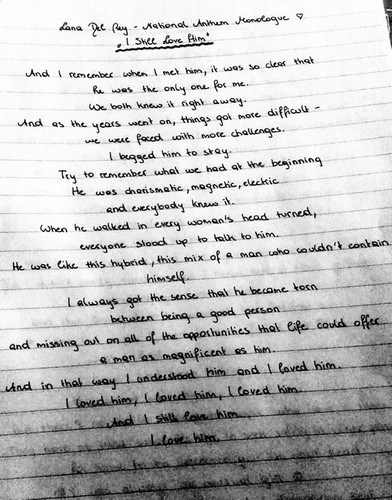 Lana Del Rey - National Anthem Monologue ♡
"I Still Love Him"
And I remember when I met him, it was so clear that
he was the only one for me.
We both knew it right away.
And as the years went on, things got more difficult -
we were faced with more challenges.
I begged him to stay.
Try to remember what we had at the beginning
He was charismatic, magnetic, electric
and everybody knew it.
When he walked in every woman's head turned,
everyone stood up to talk to him.
He was like this hybrid, this mix of a man who couldn't contain
himself.
I always got the sense that he became torn
between being a good person
and missing out on all of the opportunities that life could offer
a man as magnificent as him.
And in that way I understood him and I loved him.
I loved him, I loved him, I loved him.
And I still love him.
I love him.